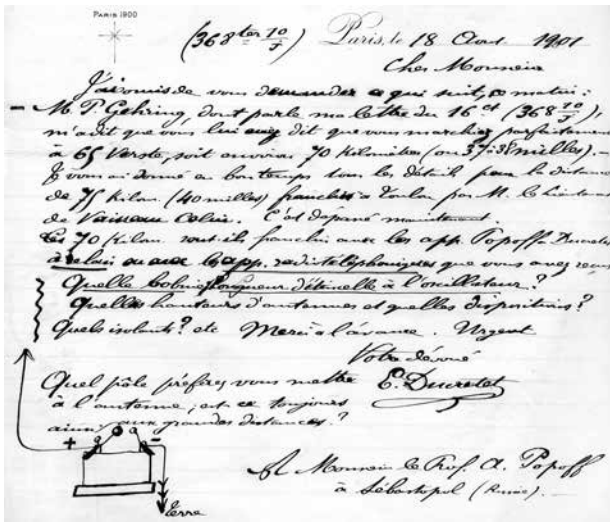 PARIS 1900
(368 ter 10/J) Paris, le 18 Aout 1901
Cher Monsieur
J'ai omis de vous demander ce qui suit, ce matin:
– M. P. Gehring, dont parle ma lettre du 16 ct (368 10/J),
m'a dit que vous lui avez dit que vous marchiez parfaitement
à 65 Verste, soit environ 70 Kilomètres (ou 37 à 38 milles). –
Je vous ai donné au bon temps tous les détails pour la distance
de 75 Kilom. (40 milles) franchie à Toulon par M. le Lieutenant
de Vaisseau Colin. C'est dépassé maintenant.
Les 70 Kilom. sont-ils franchis avec les app. Popoff-Ducretet
à relais ou aux app. radiotéléphoniques que vous avez reçus
Quelle bobine, longueur d'étincelle à l'oscillateur?
Quelles hauteurs d'antennes et quelles dispositions?
Quels isolants? etc Merci à l'avance. Urgent
Votre dévoué
E. Ducretet
Quel pôle préférez vous mettre
à l'antenne; est ce toujours
ainsi aux grandes distances?
+ –
Terre
A Monsieur le Prof. A. Popoff
à Sébastopol (Russie). –